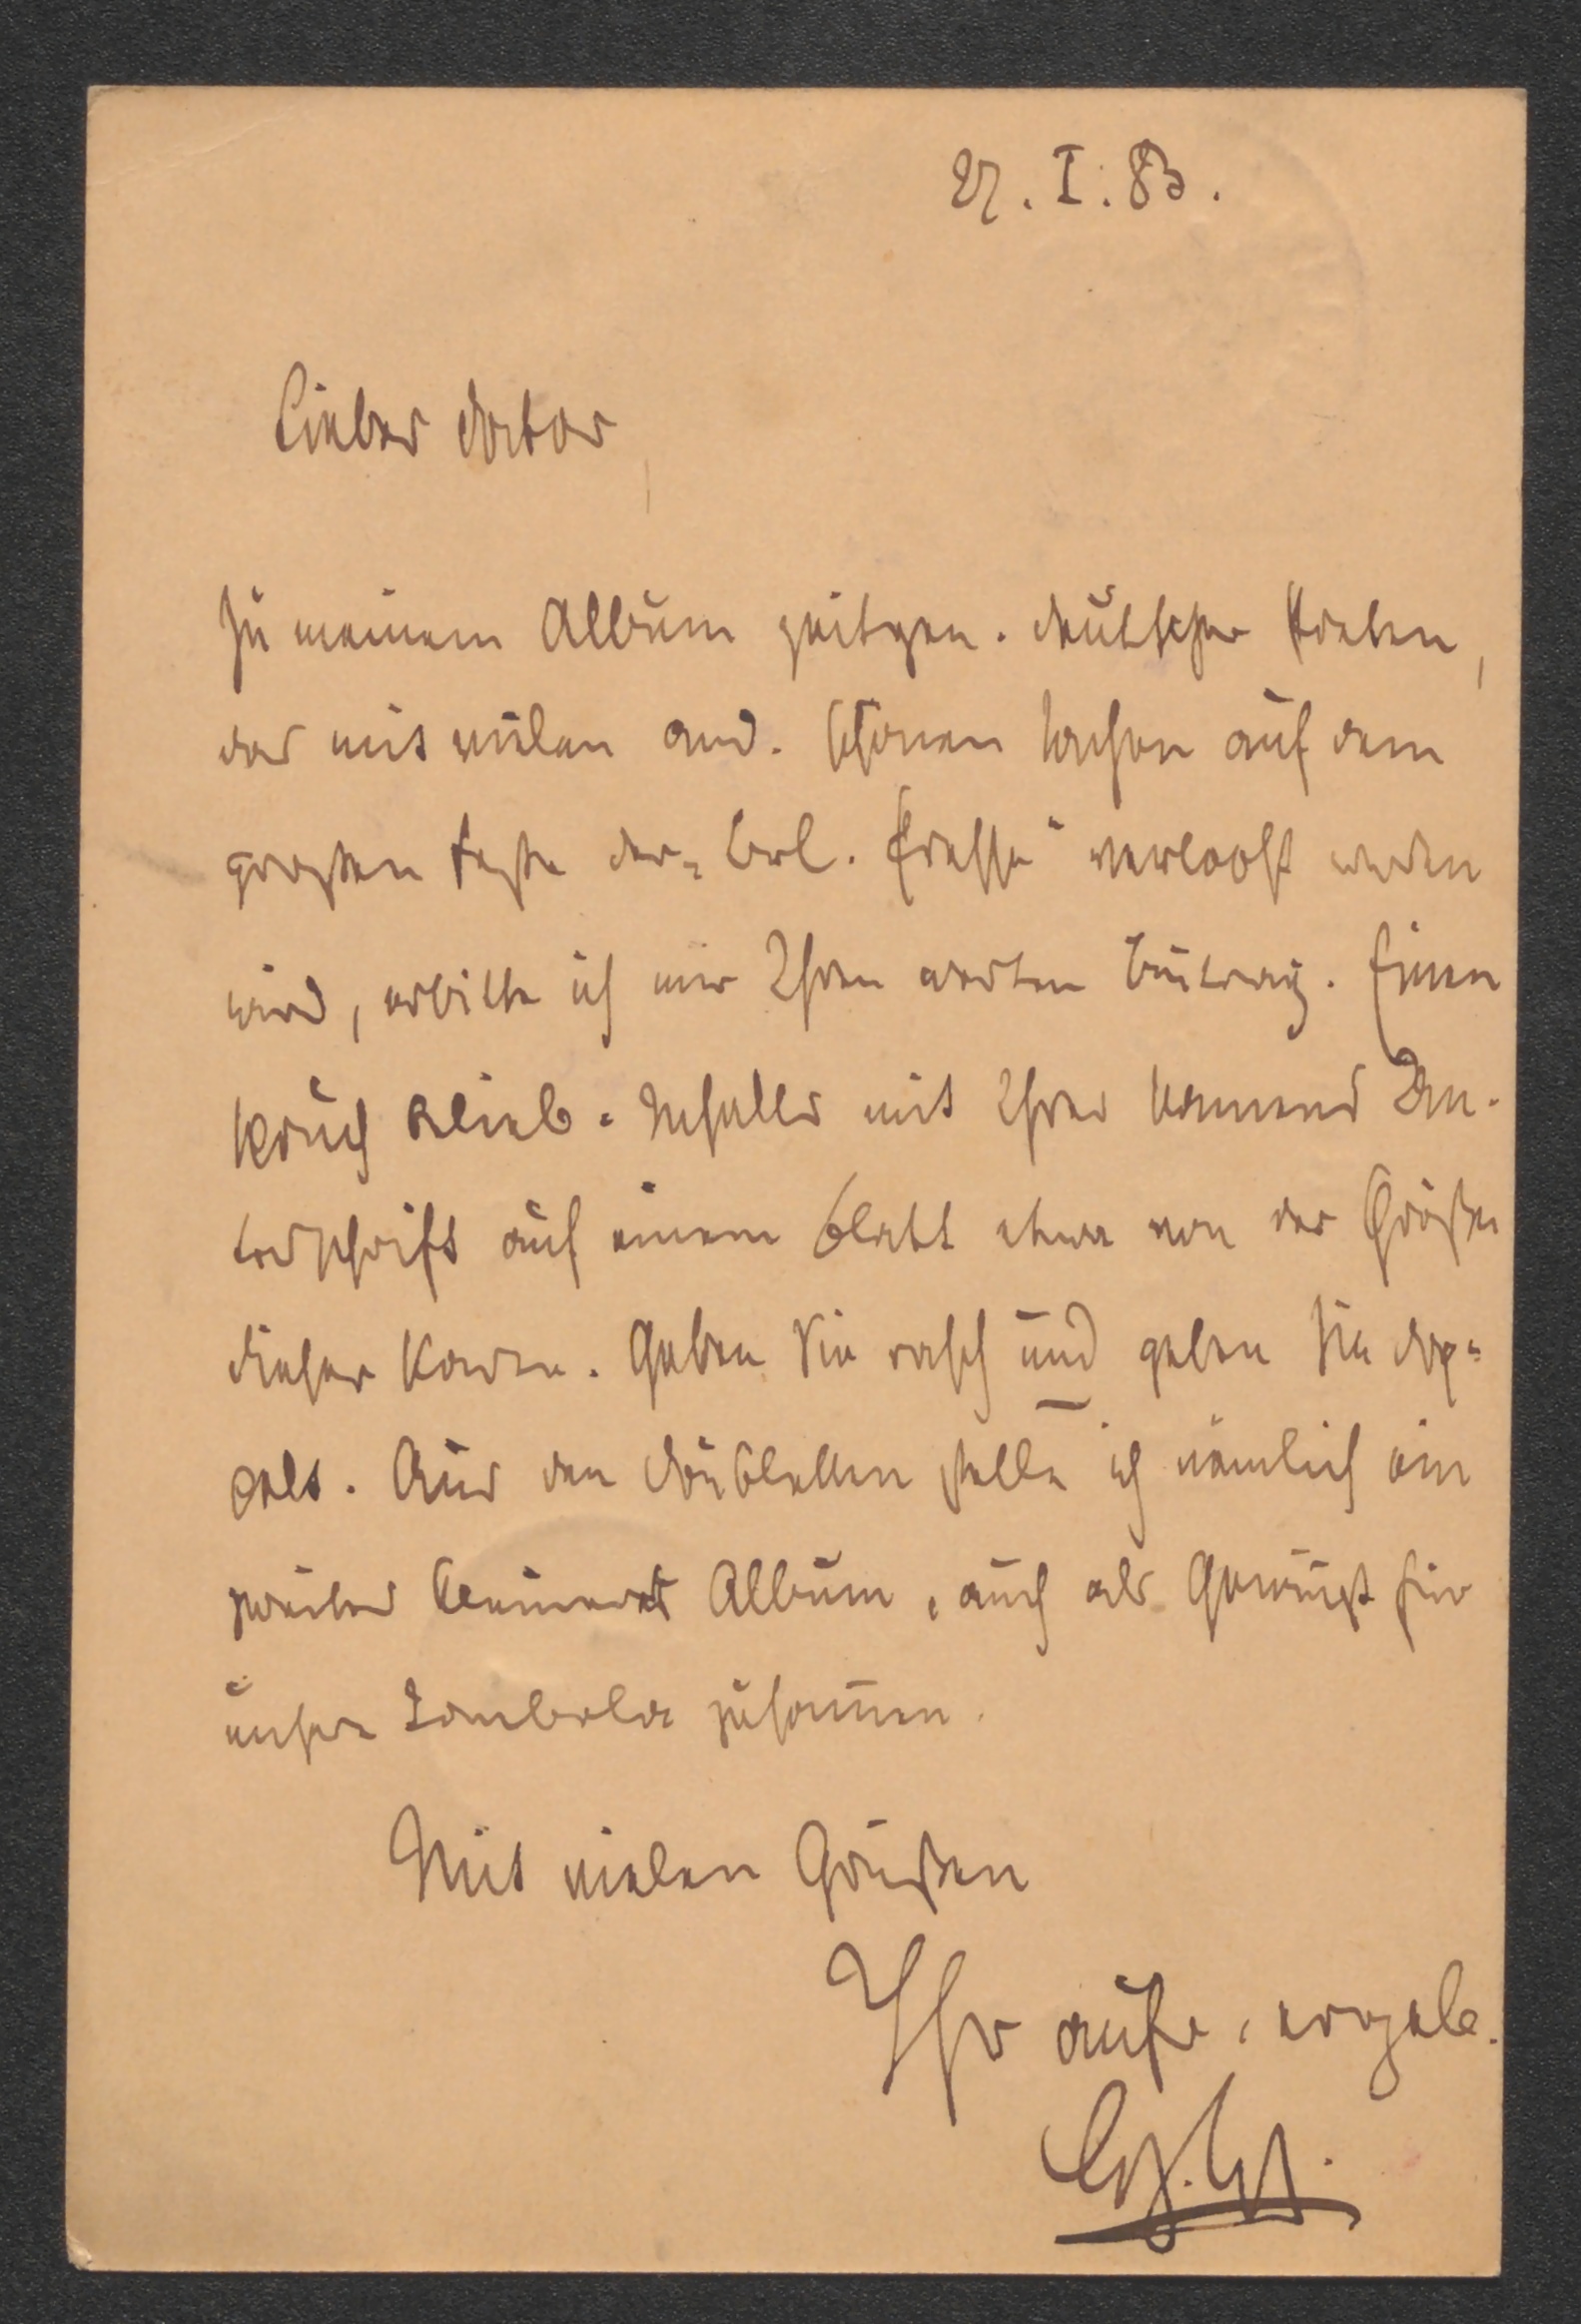 27. I. 83.
Lieber Doctor,
Zu meinem Album zeitgen. deutscher Poeten,
das mit vielen and. schönen Sachen auf dem
großen Feste der „Berl. Presse“ verloost werden
wird, erbitte ich mir Ihren werten Beitrag. Einen
Spruch belieb. Inhalts mit Ihres Namens Un-
terschrift auf einem Blatt etwa von der Größe
dieser Karte. Geben Sie rasch und geben Sie dop-
pelt. Aus den Doubletten stelle ich nämlich ein
zweites kleineres Album, auch als Gewinst für
unsre Tombola zusammen.
Mit vielen Grüßen
Ihr aufr. ergeb.